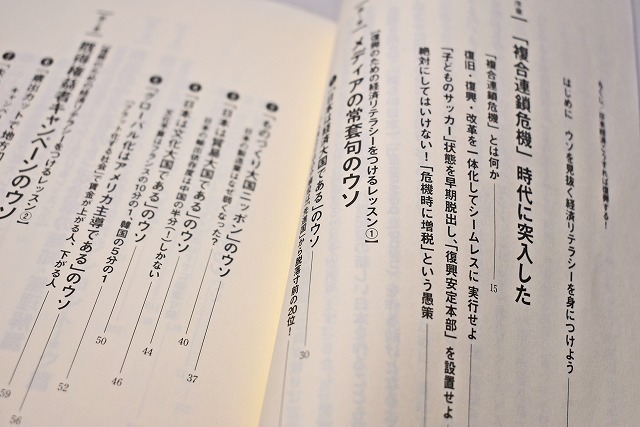 もくじ・日本経済こうすれば復興する!
はじめに ウソを見抜く経済リテラシーを身につけよう
序章
「複合連鎖危機」時代に突入した
「複合連鎖危機」とは何か 15
復旧・復興・改革を一体化してシームレスに実行せよ
「子どものサッカー」状態を早期脱出し、「復興安定本部」を設置せよ
絶対にしてはいけない!「危機時に増税」という愚策
第一章
【復興のための経済リテラシーをつけるレッスン①】
メディアの常套句のウソ
「日本は経済大国である」のウソ
から脱落寸前の20位! 30
「ものづくり大国ニッポン」のウソ
日本の製造業はなぜ弱くなった? 37
「日本は貿易大国である」のウソ
日本の輸出依存度は中国の半分(!)しかない 40
「日本は文化大国である」のウソ
文化予算はフランスの10分の1、韓国の5分の1 44
「グローバル化はアメリカ主導である」のウソ
「フラット化する社会」で賃金が上がる人、下がる人 46
50
第二章
【復興のための経済リテラシーをつけるレッスン②】
既得権益者キャンペーンのウソ
52
「歳出カットで
56
59